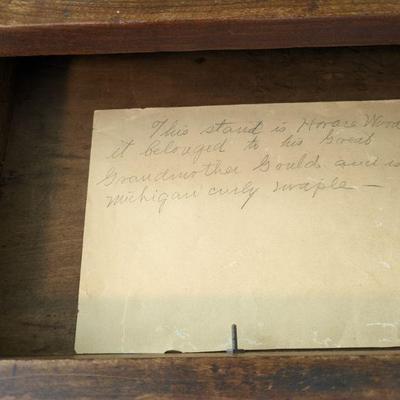 This stand is Horace Wood
it belonged to his Great
Grandmother Goulds and is
Michigan curly maple —